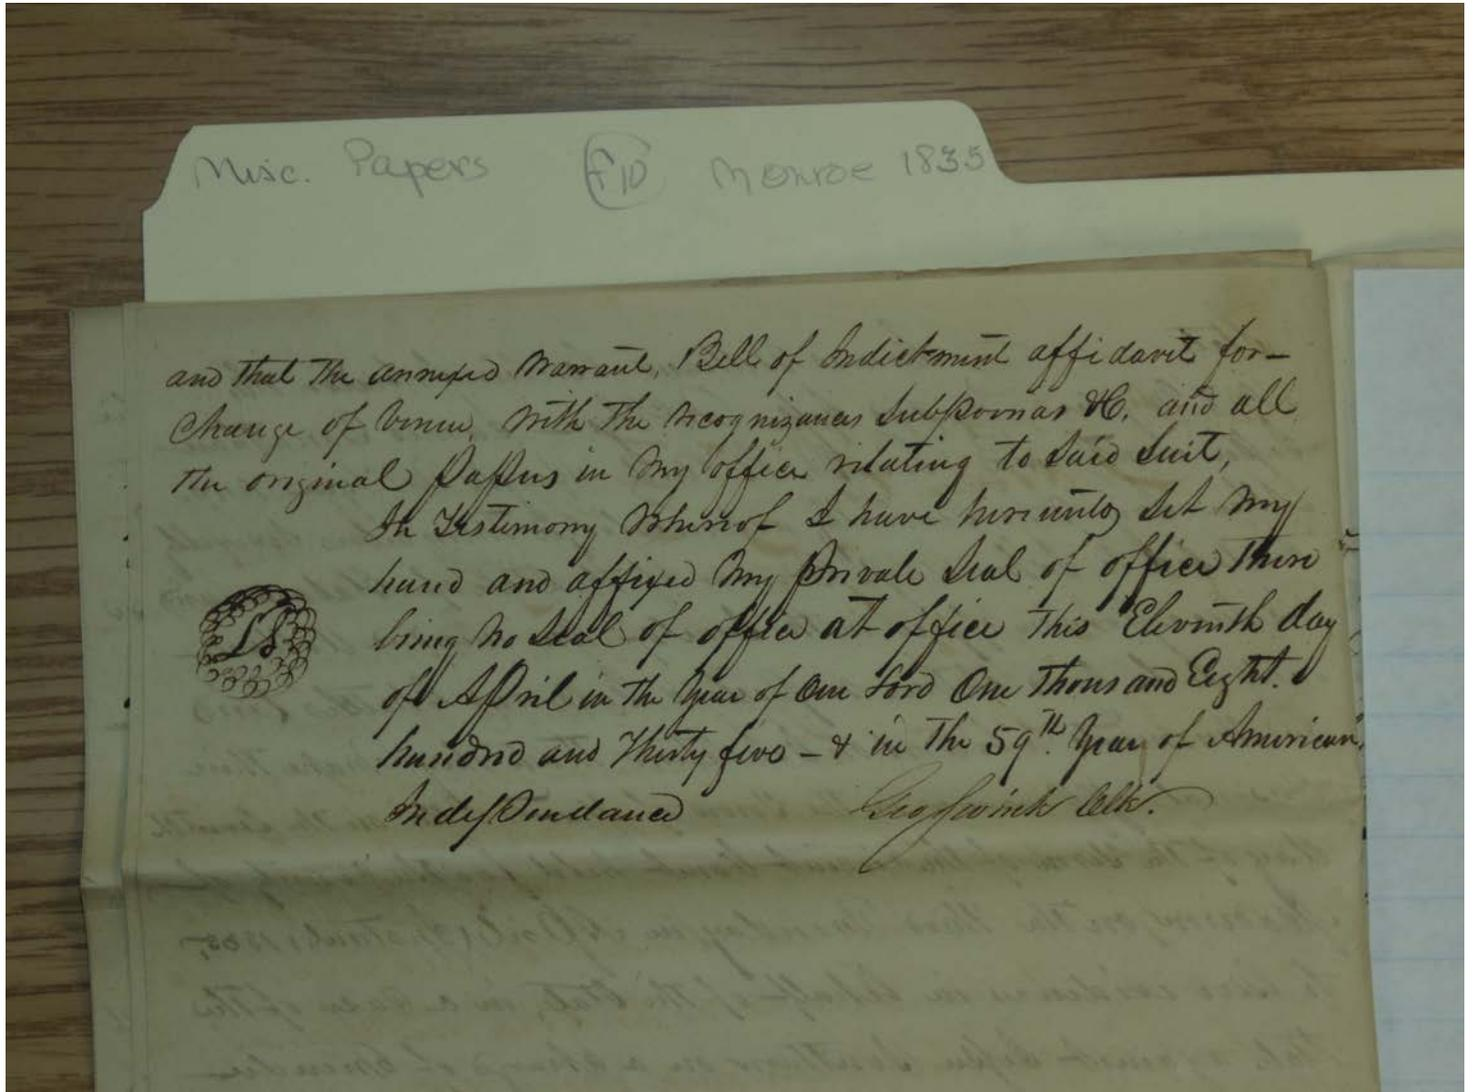 Misc. Papers F10 Monroe 1835
and that the annexed Warrant, Bill of Indictment affidavit for-
Change of Venue, With the recognizances Subpoenas &C. and all
the original Papers in My office relating to Said Suit,
In Testimony Whereof I have hereunto Set My
hand and affixed My Private Seal of office There
being No Seal of office at office This Eleventh day
of April in the Year of Our Lord One Thousand Eight.
hundred and Thirty five - & in The 59th. Year of American
Independance
LS
Geo Swink Clk.